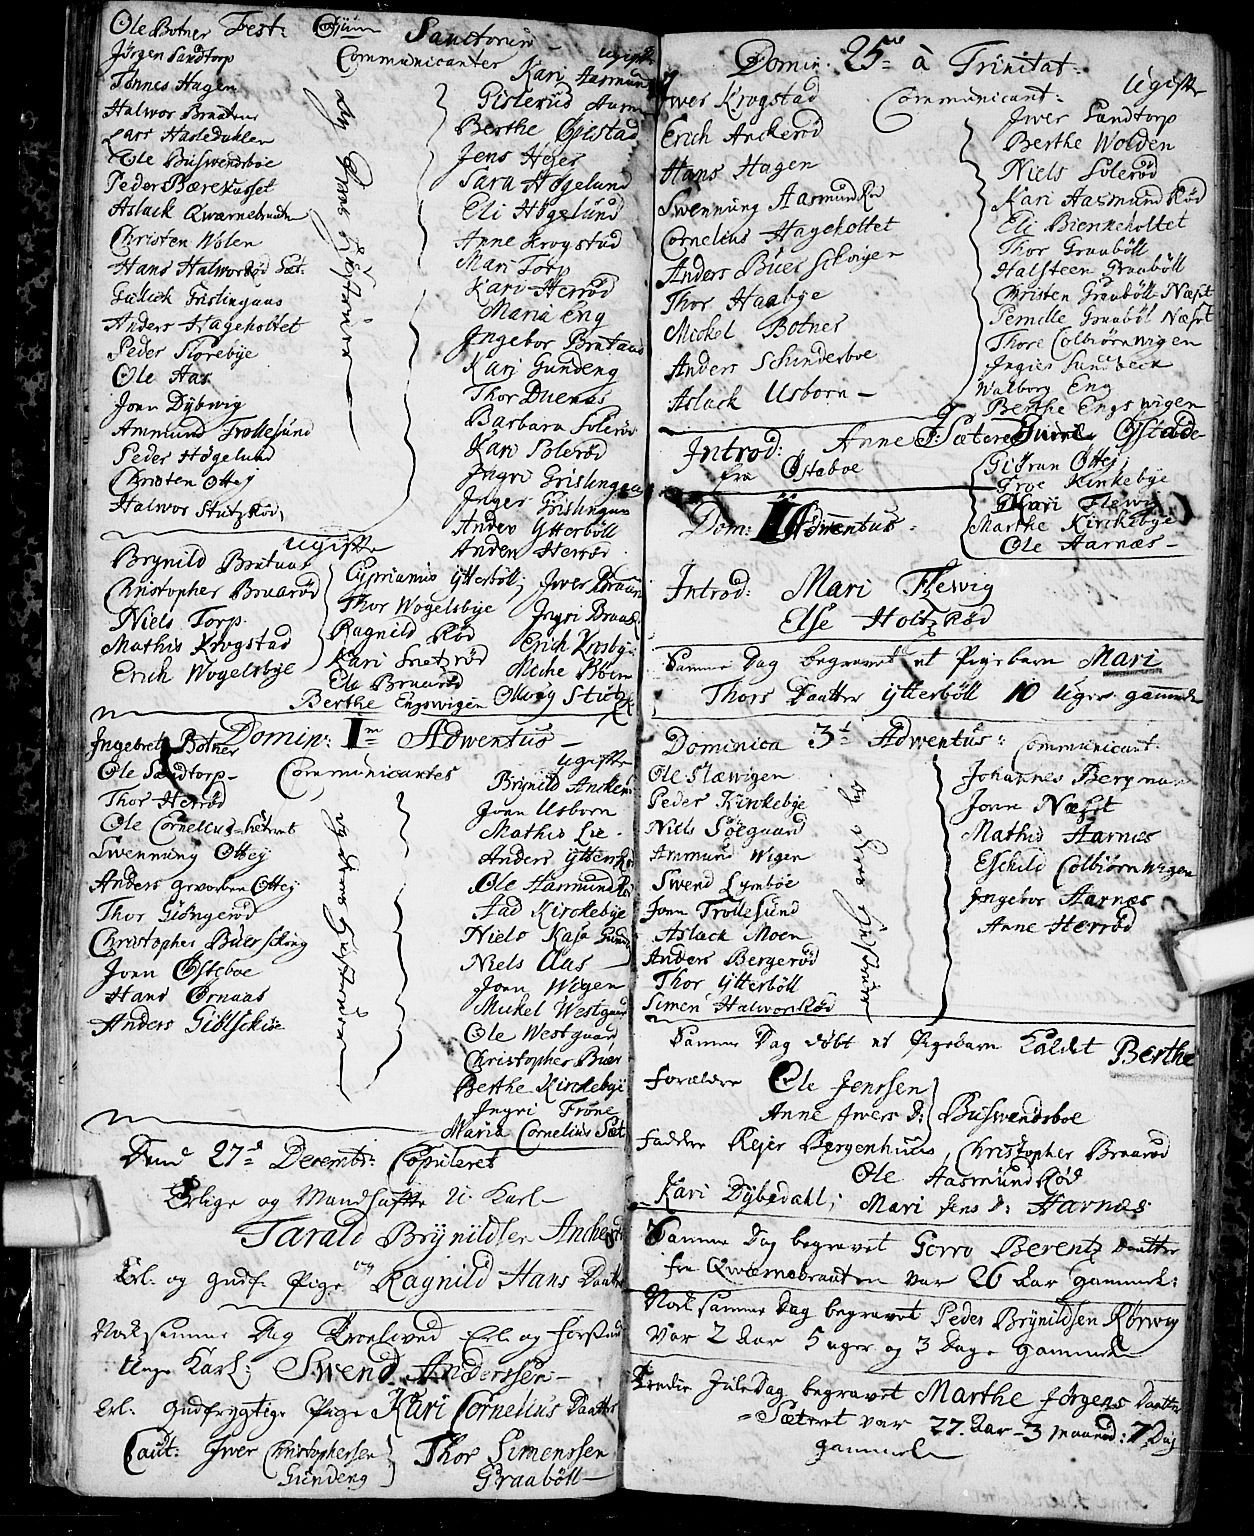 Fest: Omnium Sanctorum
Communicanter
Ole Botner
Jörgen Sandtorp
Tönnes Hagen
Halwor Braaten
Lars Hasledahlen
Ole Buswendsboe
Peder Bærekasset
Aslack Qwærnebraaten
Christen Wolen
Hans Halworsröd Sæt:
Gullick Grislingaas
Anders Hageholtet
Peder Storebye
Ole Aas
Jonn Dybwig
Ammund Trollesund
Peder Høgelund
Christen Ottey
Halwor Stutzröd
og deres Hustruer
ugifte
Kari Aasmund
Gisleröd
Berthe Giestad
Jens Heyer
Sara Høgelund
Eli Høgelund
Anne Krogstad
Mari Torp
Kari Herröd
Maria Eng
Ingebor Brataas
Kari Gundeng
Thor Duenes
Barbara Soleröd
Kari Soleröd
Ingri Grislingaas
Inger Grislingaas
Anders Ytterböll
Anders Herröd
ugifte
Brynild Brataas
Christopher Bruaröd
Niels Torp
Mathis Krogstad
Erich Wogelsbye
Cyprianus Ytterböll
Thor Wogelsbye
Ragnild Röd
Kari Snetzröd
Ele Bruaröd
Berthe Engswigen
Iwer Braaten
Ingri Braat
Erich Krosbye
Miche Böen
Domin: I Adwentus
Communicantes
Ingebret Botner
Ole Sandtorp
Thor Herröd
Ole Cornelius-Sætret
Swenning Ottey
Anders Grworben Ottey
Thor Giöngeröd
Christopher Buersching
Jonn Østeboe
Hans Ørnaas
Anders Giölsckiöe
og deres Hustruer
ugifte
Brynild Anckeröd
Jonn Usborn
Mathis Lie
Anders Ytterröd
Ole Aasmundröd
Aad Kirckebye
Niels Kasa
Niels Aas
Jonn Wigen
Mickel Westgaard
Ole Westgaard
Christopher Buer
Berthe Kirckebye
Ingri Fröne
Maria Cornelius Sæt
Dend 27de Decembr: Copuleret
Erlige og Mandhafte u: Karl
Tarald Brynildsen Anckeröd
og
Erl. og gudf. Pige Ragnild Hans Daatter
Nock samme Dag Troelowed Erl. og forstand
Unge Karl: Swend Anderssen
Erl. gudfrygtige Pige Kari Cornelius Daatter
Caut: Iwer Christophersen Gundeng
Thor Simenssen Graaböll
Domin: 25 à Trinitat:
Communicant:
Iwer Krogstad
Erich Anckeröd
Hans Hagen
Swenning Aasmundröd
Cornelius Hageholtet
Anders Buer Schoigen
Thor Haabye
Mickel Botner
Anders Schinderboe
Aslack Usborn
Ugifte
Iwer Sandtorp
Berthe Wolden
Niels Soleröd
Kari Aasmundröd
Eli Bienneholtet
Thor Graaböll
Halsteen Graaböll
Christen Graaböll-Næst
Pernille Graaböl Næst
Thore Colbiörnwigen
Ingier Sundbeck
Walborg Eng
Berthe Engswigen
Giöstad
Gidrun Ottey
Troe Kirkebye
Mari Flewig
Marthe Kirckebye
Ole Aarnæs
Introd: Anne P: Sætere
fra Østeboe
Dom: II Adwentus
Introd: Mari Flewig
Else Holtzröd
Samme Dag begravet et Pigebarn Mari
Thors Daatter Ytterböll 10 Uger gammel
Dominica 3de Adwentus: Communicant:
Ole Slæwigen
Peder Kirckebye
Niels Söegaard
Ammund Wigen
Swend Lymböe
Jonn Trollesund
Aslack Moen
Anders Bergeröd
Thor Ytterböll
Simen Halworsröd
og deres Hustruer
Johannes Bergman
Jonn Næst
Mathis Aarnæs
Eschild Colbiörnwigen
Ingebor Aarnæs
Anne Herröd
Samme Dag döbt et Pigebarn kaldet Berthe
forældre Ole Jenssen
Anne Iwers D: Buswendsboe
Faddere Rejer Bergenhuus, Christopher Bruaröd
Ole Aasmundsröd
Kari Dybedahl; Mari Jens D: Aarnæs
Samme Dag begravet Gorro Berentz Daatter
fra Qwærnebraaten var 26 Aar gammel:
Nock samme Dag begravet Peder Brynildsen Rörwig
var 2 Aar 5 uger og 3 Dage gammel
Tredie Jule Dag begravet Marthe Jörgens Daatter
Sætret var 77. Aar-3 maaned: 7 Dag
gammel